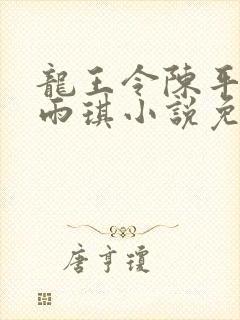 龍王令陳平
雨琪小說免
唐亨瓊